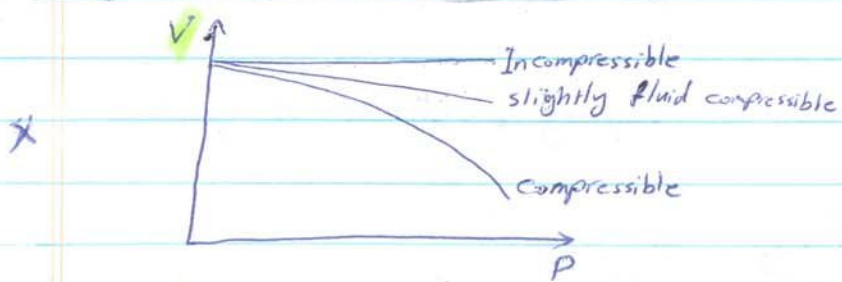 V
Incompressible
slightly fluid compressible
x
compressible
P